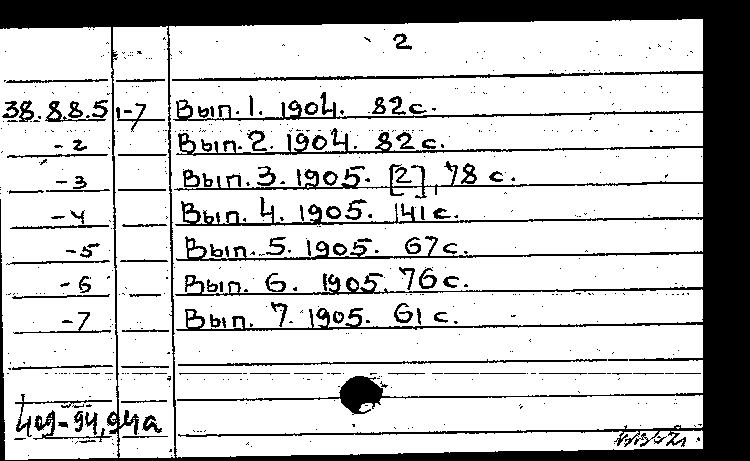 2
38.8.8.5 1-7 Вып. 1. 1904. 82 с.
-2 Вып. 2. 1904. 82 с.
-3 Вып. 3. 1905. [2], 78 с.
-4 Вып. 4. 1905. 141 с.
-5 Вып. 5. 1905. 67 с.
-6 Вып. 6. 1905. 76 с.
-7 Вып. 7. 1905. 61 с.
409-94,94а